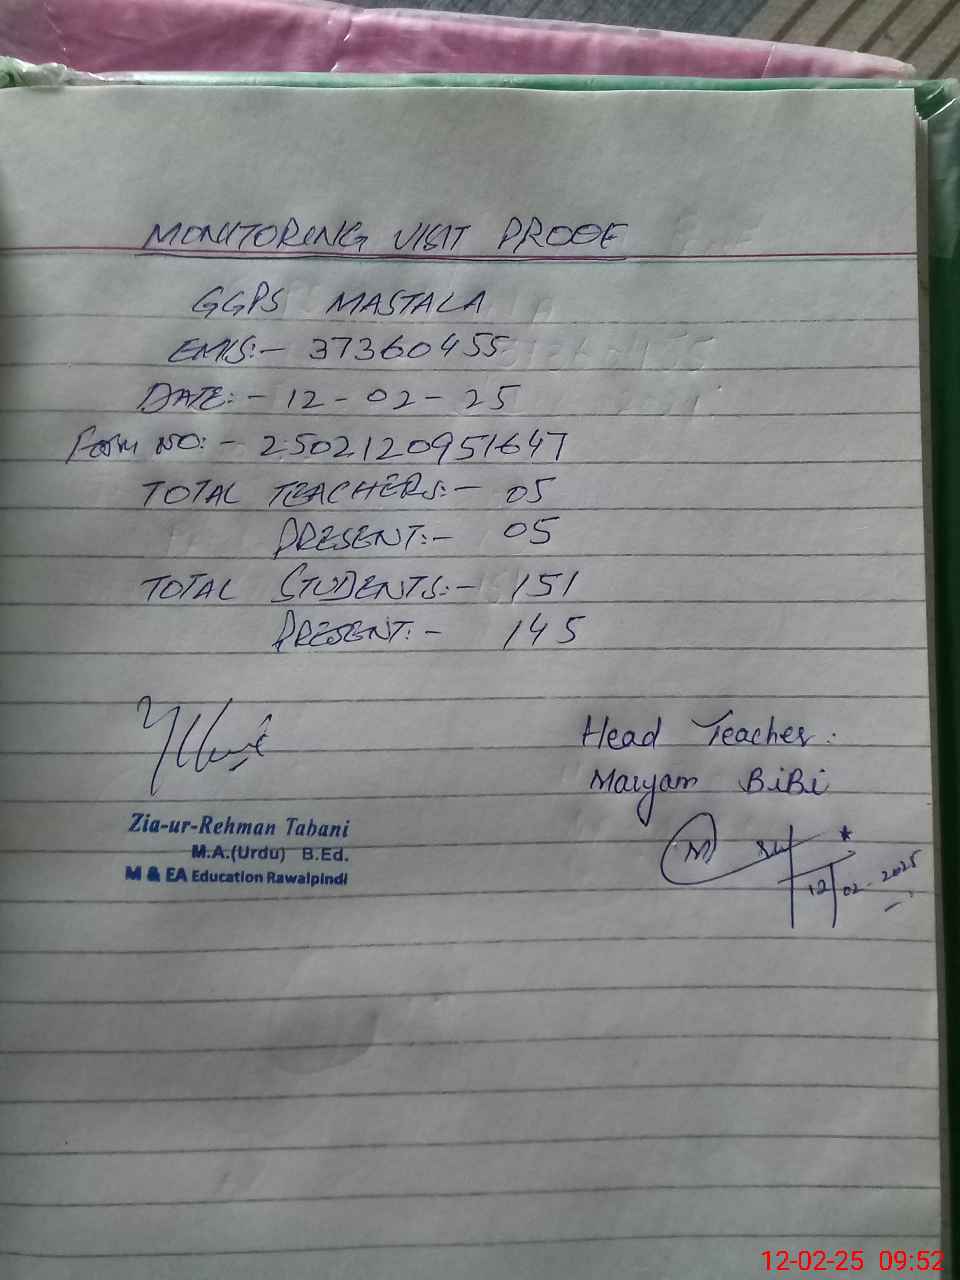 MONITORING VISIT PROOF
GGPS MASTALA
EMIS:- 37360455
DATE:- 12-02-25
Form NO:- 2502120951647
TOTAL TEACHERS:- 05
PRESENT:- 05
TOTAL STUDENTS:- 151
PRESENT:- 145
Head Teacher:
Maryam BiBi
Zia-ur-Rehman Tabani
M.A.(Urdu) B.Ed.
M & EA Education Rawalpindi
12/02-2025
12-02-25 09:52